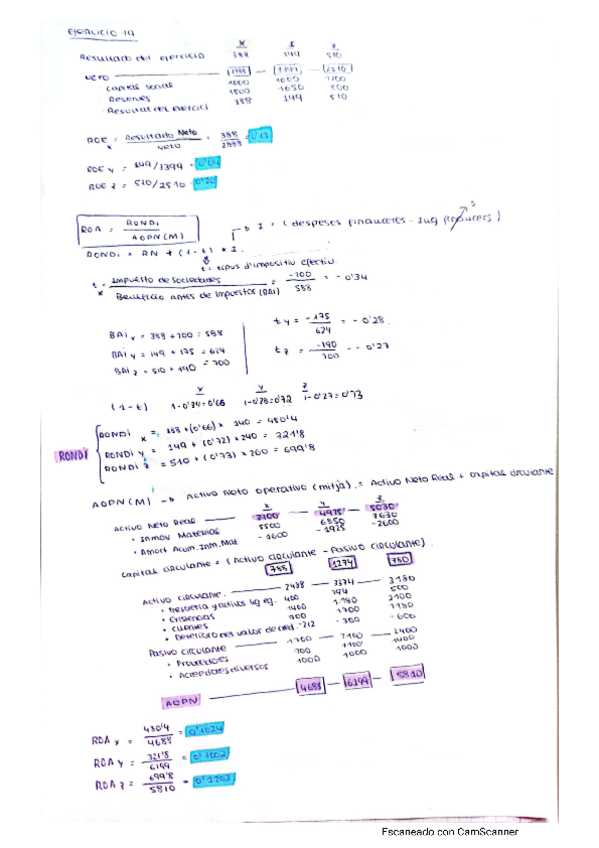 EJERCICIO 19
X Y Z
Resultado del ejercicio 388 149 510
Neto 2888 — — 2510
capital social 1000 1000 1200
Reserves 1500 1050 800
Resultat del exercici 388 149 510
ROE x = Resultado Neto / Neto = 388 / 2888 = 0'13
ROE y = 149/3399 = 0'04
ROE z = 510/2510 = 0'20
ROA = RONDI / AOPN(M)
I = (despeses financeres - Ing financers)
RONDI = RN + (1-t) * I
t = tipus d'impositiu efectiu
t x = Impuesto de sociedades / Beneficio antes de impuestos (BAI) = -200 / 588 = -0'34
BAI x = 388 + 200 = 588
BAI y = 149 + 175 = 624
BAI z = 510 + 190 = 700
t y = -175 / 624 = -0'28
t z = -190 / 700 = -0'27
X Y Z
(1-t) 1-0'34=0'66 1-0'28=0'72 1-0'27=0'73
RONDI
RONDI x = 388 + (0'66) x 140 = 480'4
RONDI y = 149 + (0'72) x 240 = 321'8
RONDI z = 510 + (0'73) x 260 = 699'8
AOPN (M) → Activo Neto operativo (mitjà) = Activo Neto Real + capital circulante
X Y Z
Activo Neto Real — 4925 — 5030
• Inmov Materials 5500 6850 7630
• Amort Acum. Inm. Mat -1600 -1925 -2600
Capital circulante = (Activo circulante - Pasivo circulante)
788 1274 780
Activo circulante — 2488 — 3374 — 3180
• Tresoreria y activos liq eq. 400 794 500
• Existencias 1400 1.180 2100
• Clientes 900 1700 1180
• Deterioro del valor de cred. -212 -300 -600
Pasivo circulante — 1700 — 2100 — 2400
• Proveedores 700 1100 1400
• Acreedores diversos 1000 1000 1000
AOPN — 4688 — 6199 — 5810
ROA x = 480'4 / 4688 = 0'1024
ROA y = 321'8 / 6199 =
ROA z = 699'8 / 5810 =
Escaneado con CamScanner